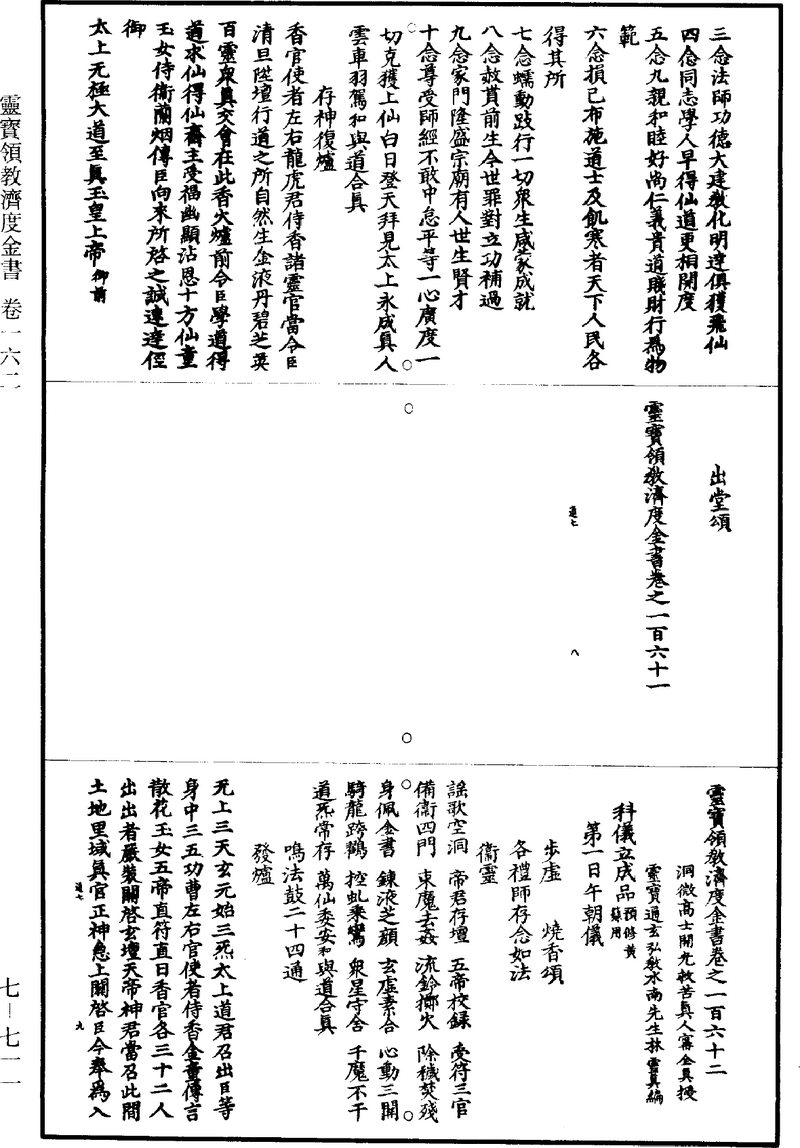 三念法師功德大建敎化明達俱獲飛仙
四念同志學人早得仙道更相開度
五念九親和睦好尚仁義貴道賤財行爲物
範
六念損己布施道士及飢寒者天下人民各
得其所
七念蠕動跂行一切衆生咸蒙成就
八念赦貰前生今世罪對立功補過
九念家門隆盛宗廟有人世生賢才
十念尊受師經不敢中怠平等一心廣度一
切克獲上仙白日登天拜見太上永成眞人
雲車羽駕和與道合眞
存神復爐
香官使者左右龍虎君侍香諸靈官當令臣
清旦陞壇行道之所自然生金液丹碧芝英
百靈衆眞交會在此香火爐前令臣學道得
道求仙得仙齋主受福幽顯沾恩十方仙童
玉女侍衛蘭烟傳臣向來所啓之誠速達徑
御
太上无極大道至眞玉皇上帝御前
出堂頌
靈寶領敎濟度金書卷之一百六十一
道七
八
靈寶領敎濟度金書卷之一百六十二
洞微高士開光救苦眞人甯全眞授
靈寶通玄弘敎水南先生林靈眞編
科儀立成品預修黃籙用
第一日午朝儀
步虛 燒香頌
各禮師存念如法
衞靈
謡歌空洞 帝君存壇 五帝校録 受符三官
備衞四門 束魔去姦 流鈴擲火 除穢焚殘
身佩金書 鍊液芝顔 玄虛素合 心動三開
騎龍跨鶴 控虬乘鸞 衆星守舍 千魔不干
道炁常存 萬仙委安和與道合眞
鳴法鼓二十四通
發爐
无上三天玄元始三炁太上道君召出臣等
身中三五功曹左右官使者侍香金童傳言
散花玉女五帝直符直日香官各三十二人
出出者嚴裝關啓玄壇天帝神君當召此間
土地里域眞官正神急上關啓臣今奉爲入
道七
九
靈寶領教濟度金書 卷一六二
七—七一一